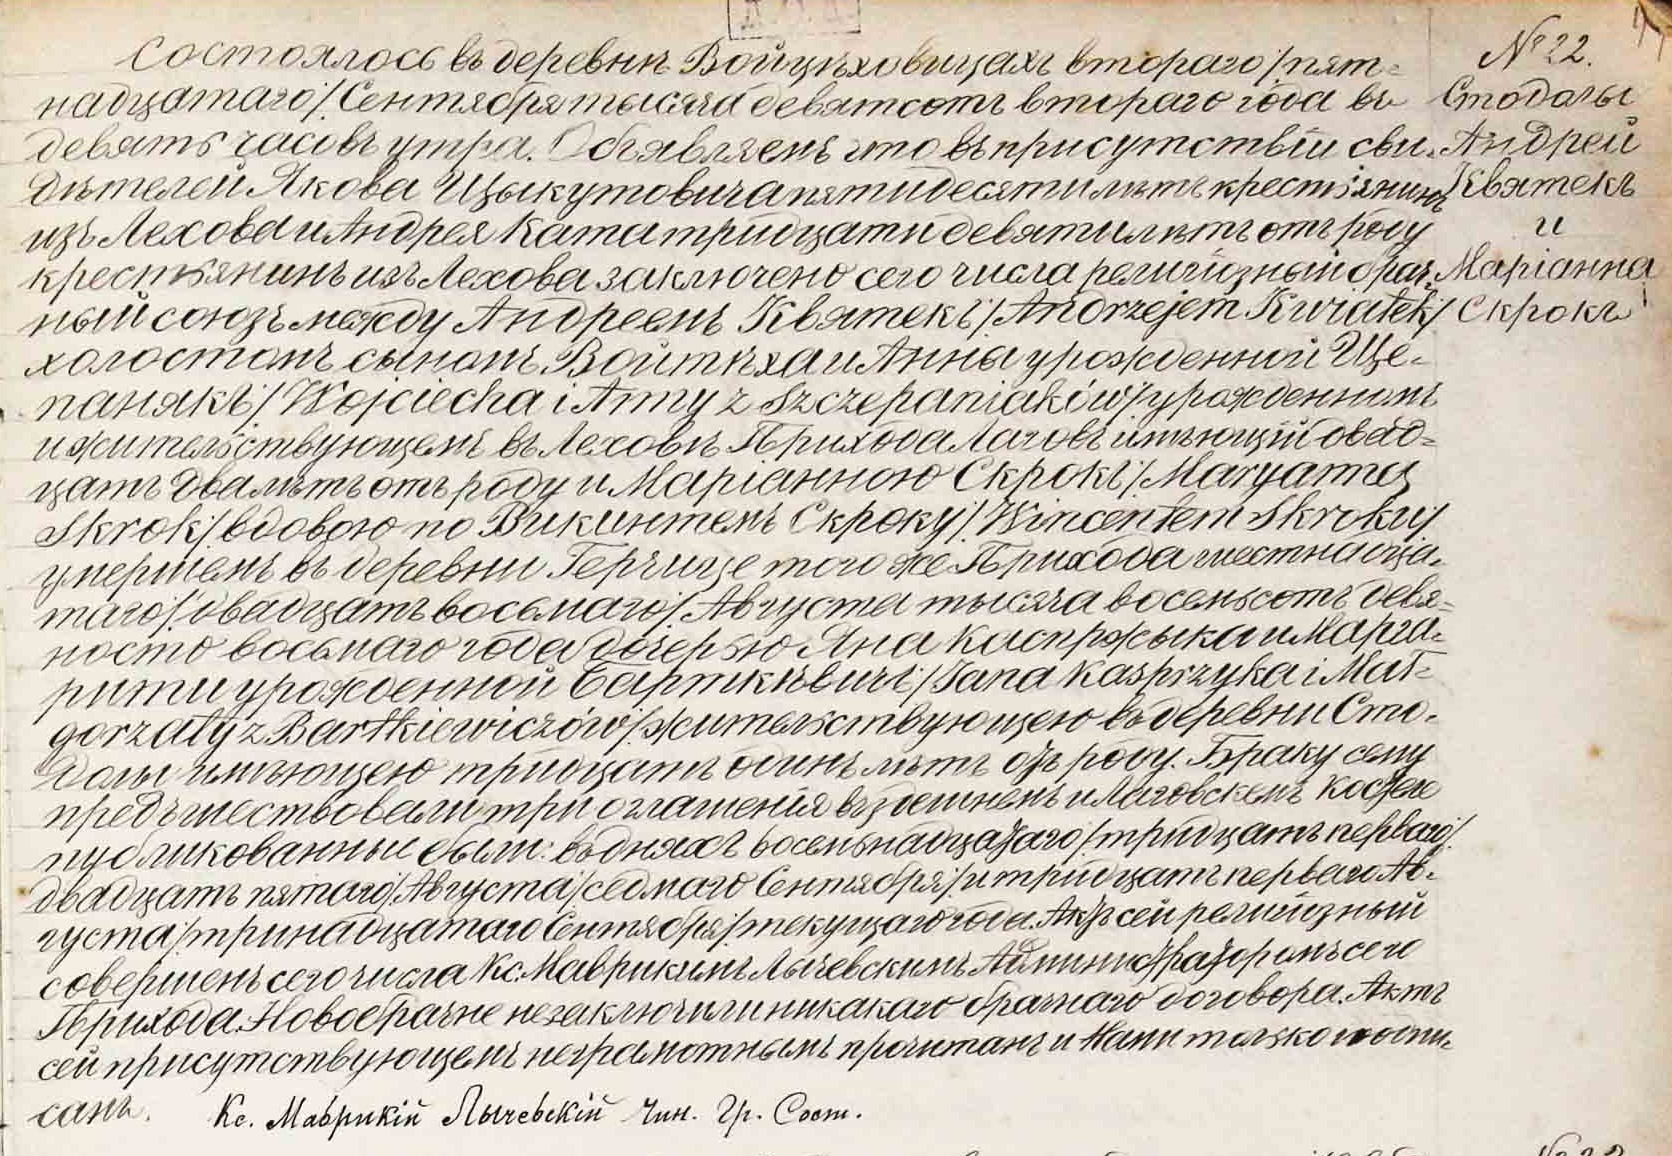 № 22.
Стодолы
Андрей
Квятекъ
и
Маріанна
Скрокъ
Состоялось въ деревнѣ Войцѣховицахъ втораго /пят=
надцатаго/ Сентября тысяча девятсотъ втораго года въ
девять часовъ утра. Объявляемъ что въ присутствіи сви-
дѣтелей Якова Цыкутовича пятидесяти лѣтъ крестьянинъ
изъ Лехова и Андрея Ката тридцати девяти лѣтъ отъ роду
крестьянинъ изъ Лехова заключено сего числа религіозный брач-
ный союзъ между Андреемъ Квятекъ /Andrzejem Kwiatek/
холостомъ сыномъ Войтѣха и Анны урожденной Ще-
панякъ /Wojciecha i Anny z Szczepaniaków/ урожденнымъ
и жительствующемъ въ Леховѣ Прихода Лаговъ имѣющій двад=
цать два лѣтъ отъ роду и Маріанною Скрокъ /Maryanną
Skrok/ вдовою по Викинтемъ Скроку /Wincentem Skroku/
умершемъ въ деревни Герчице того же Прихода шестнадца-
таго /двадцать восьмаго/ Августа тысяча восемьсотъ девя=
носто восьмаго года дочерью Яна Каспржыка и Марга-
риты урожденной Барткѣвичъ /Jana Kasprzyka i Mał-
gorzaty z Bartkiewiczów/ жительствующею въ деревни Сто-
долы имѣющею тридцать одинъ лѣтъ отъ роду. Браку сему
предшествовали три оглашенія въ здешнемъ и Лаговскемъ Костеле
публикованные были: въ дняхъ восемьнадцатаго /тридцать перваго/
двадцать пятаго /Августа/ седмаго Сентября/ и тридцать перваго Ав-
густа /тринадцатаго Сентября/ текущаго года. Актъ сей религіозный
совершенъ сего числа Кс. Маврикимъ Лычевскимъ Администраторомъ сего
Прихода. Новобрачне незаключили никакаго брачнаго договора. Актъ
сей присутствующемъ неграмотнымъ прочитанъ и Нами только подпи-
санъ.
Кс. Маврикій Лычевскій Чин. Гр. Сост.